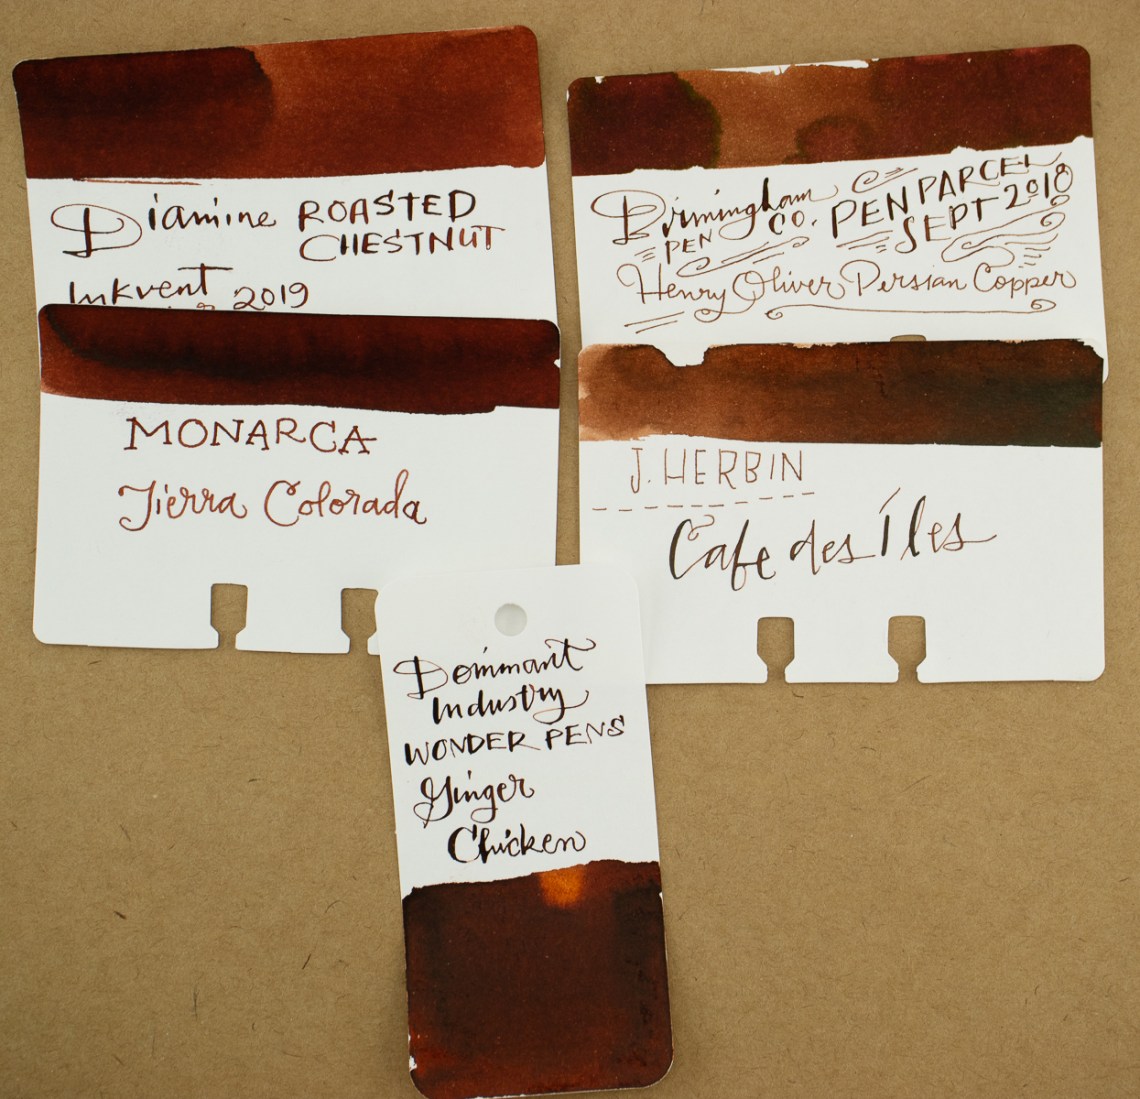 Diamine ROASTED
CHESTNUT
Inkvent 2019
MONARCA
Tierra Colorada
Birmingham
PEN CO.
PEN PARCEL
SEPT 2018
Henry Oliver Persian Copper
J. HERBIN
Cafe des Îles
Dominant
Industry
WONDER PENS
Ginger
Chicken